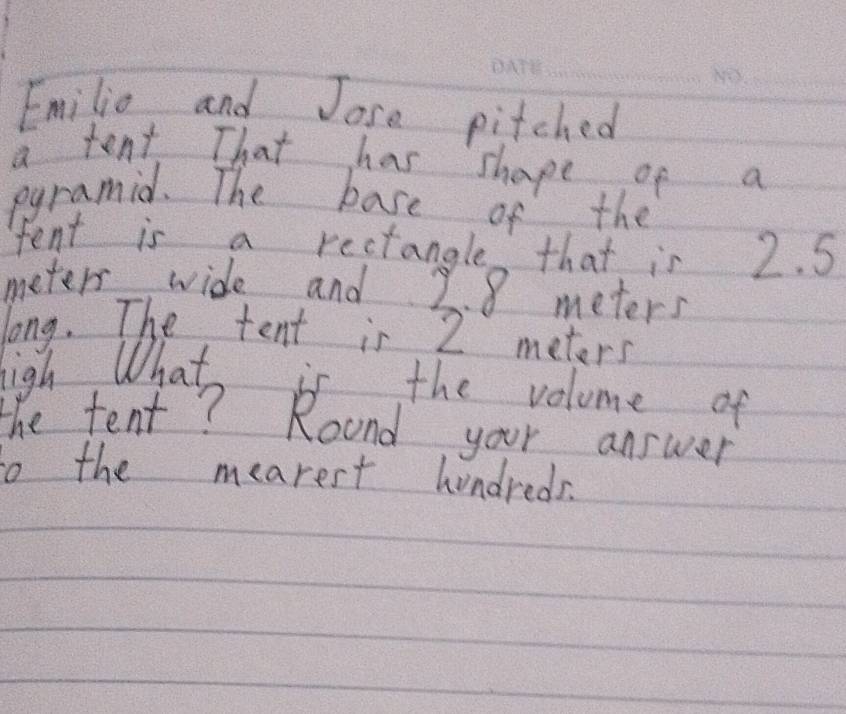 DATE NO.
Emilio and Jose pitched
a tent That has shape of a
pyramid. The base of the
tent is a rectangle that is 2.5
meters wide and 2.8 meters
long. The tent is 2 meters
high What is the volume of
the tent? Round your answer
to the mearest hundreds.